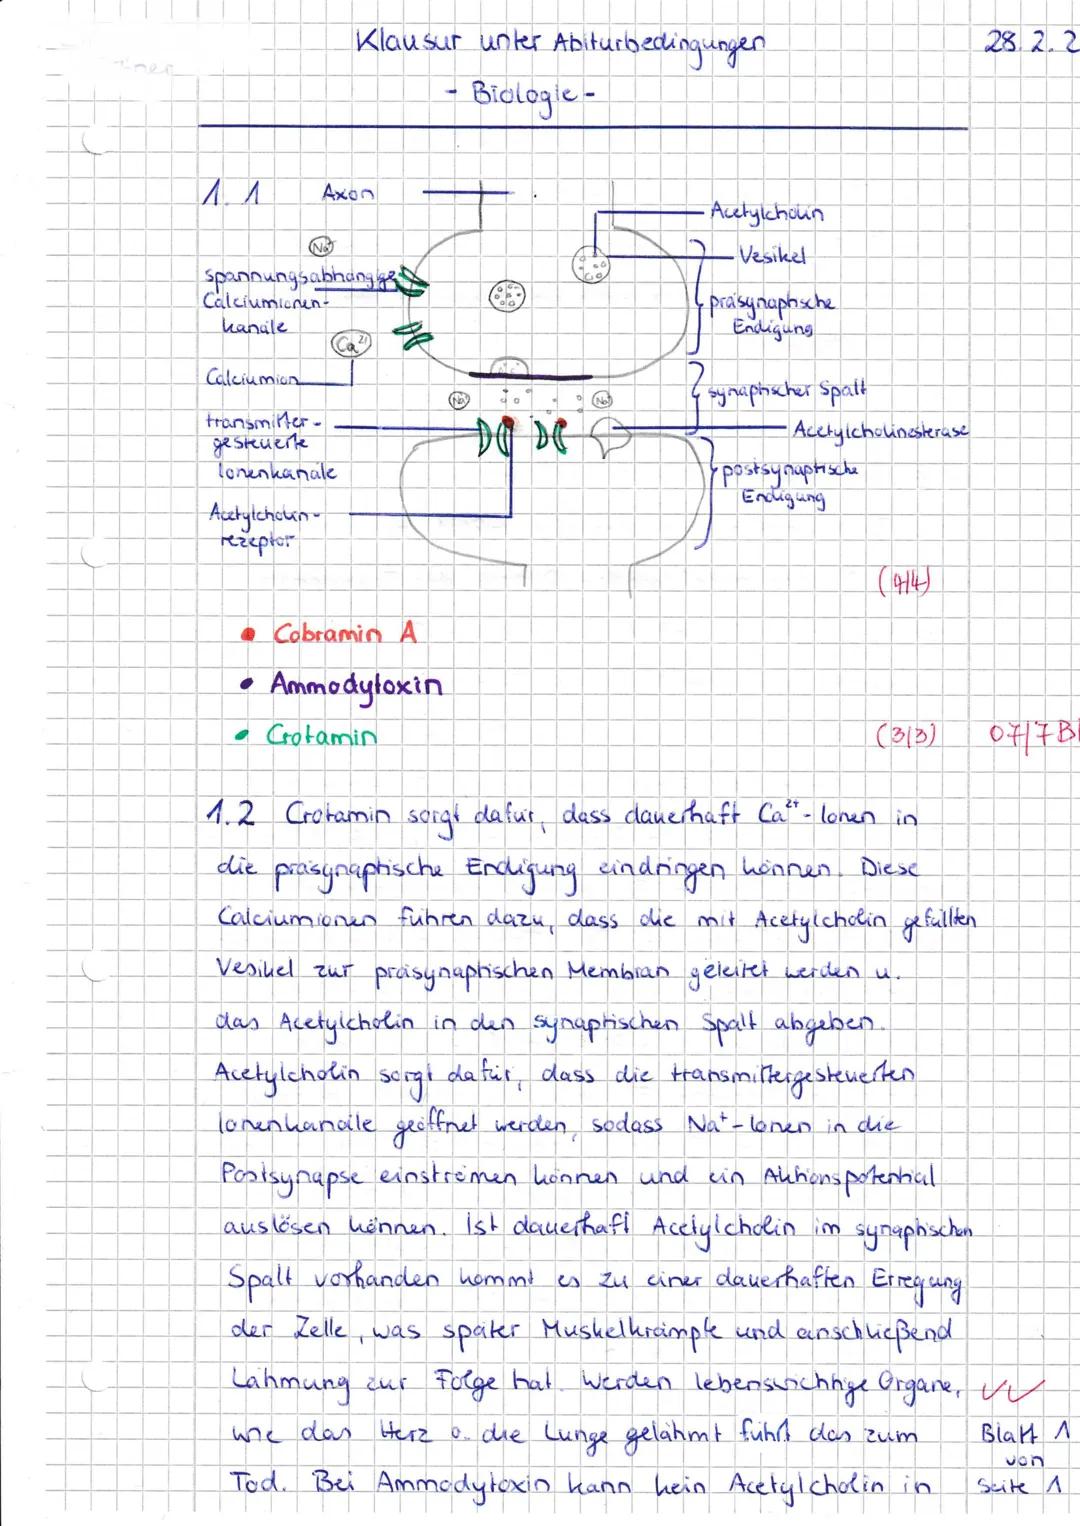 Klausur unter Abiturbedingungen
28.2.2
- Biologie -
1.1
Axon
Acetylcholin
Na⁺
Vesikel
spannungsabhängige
Calciumionen-
kanäle
präsynaptische
Endigung
Ca²⁺
Calciumion
synaptischer Spalt
Na⁺
Na⁺
transmitter-
gesteuerte
Ionenkanäle
Acetylcholinesterase
postsynaptische
Endigung
Acetylcholin-
rezeptor
(4/4)
• Cobramin A
• Ammodytoxin
• Crotamin
(3/3) 07/7 B
1.2 Crotamin sorgt dafür, dass dauerhaft Ca²⁺-Ionen in
die präsynaptische Endigung eindringen können. Diese
Calciumionen führen dazu, dass die mit Acetylcholin gefüllten
Vesikel zur präsynaptischen Membran geleitet werden u.
das Acetylcholin in den synaptischen Spalt abgeben.
Acetylcholin sorgt dafür, dass die transmittergesteuerten
Ionenkanäle geöffnet werden, sodass Na⁺-Ionen in die
Postsynapse einströmen können und ein Aktionspotential
auslösen können. Ist dauerhaft Acetylcholin im synaptischen
Spalt vorhanden kommt es zu einer dauerhaften Erregung
der Zelle, was später Muskelkrämpfe und anschließend
Lähmung zur Folge hat. Werden lebenswichtige Organe,
wie das Herz o. die Lunge gelähmt führt das zum
Tod. Bei Ammodytoxin kann kein Acetylcholin in
Blatt 1
von
Seite 1